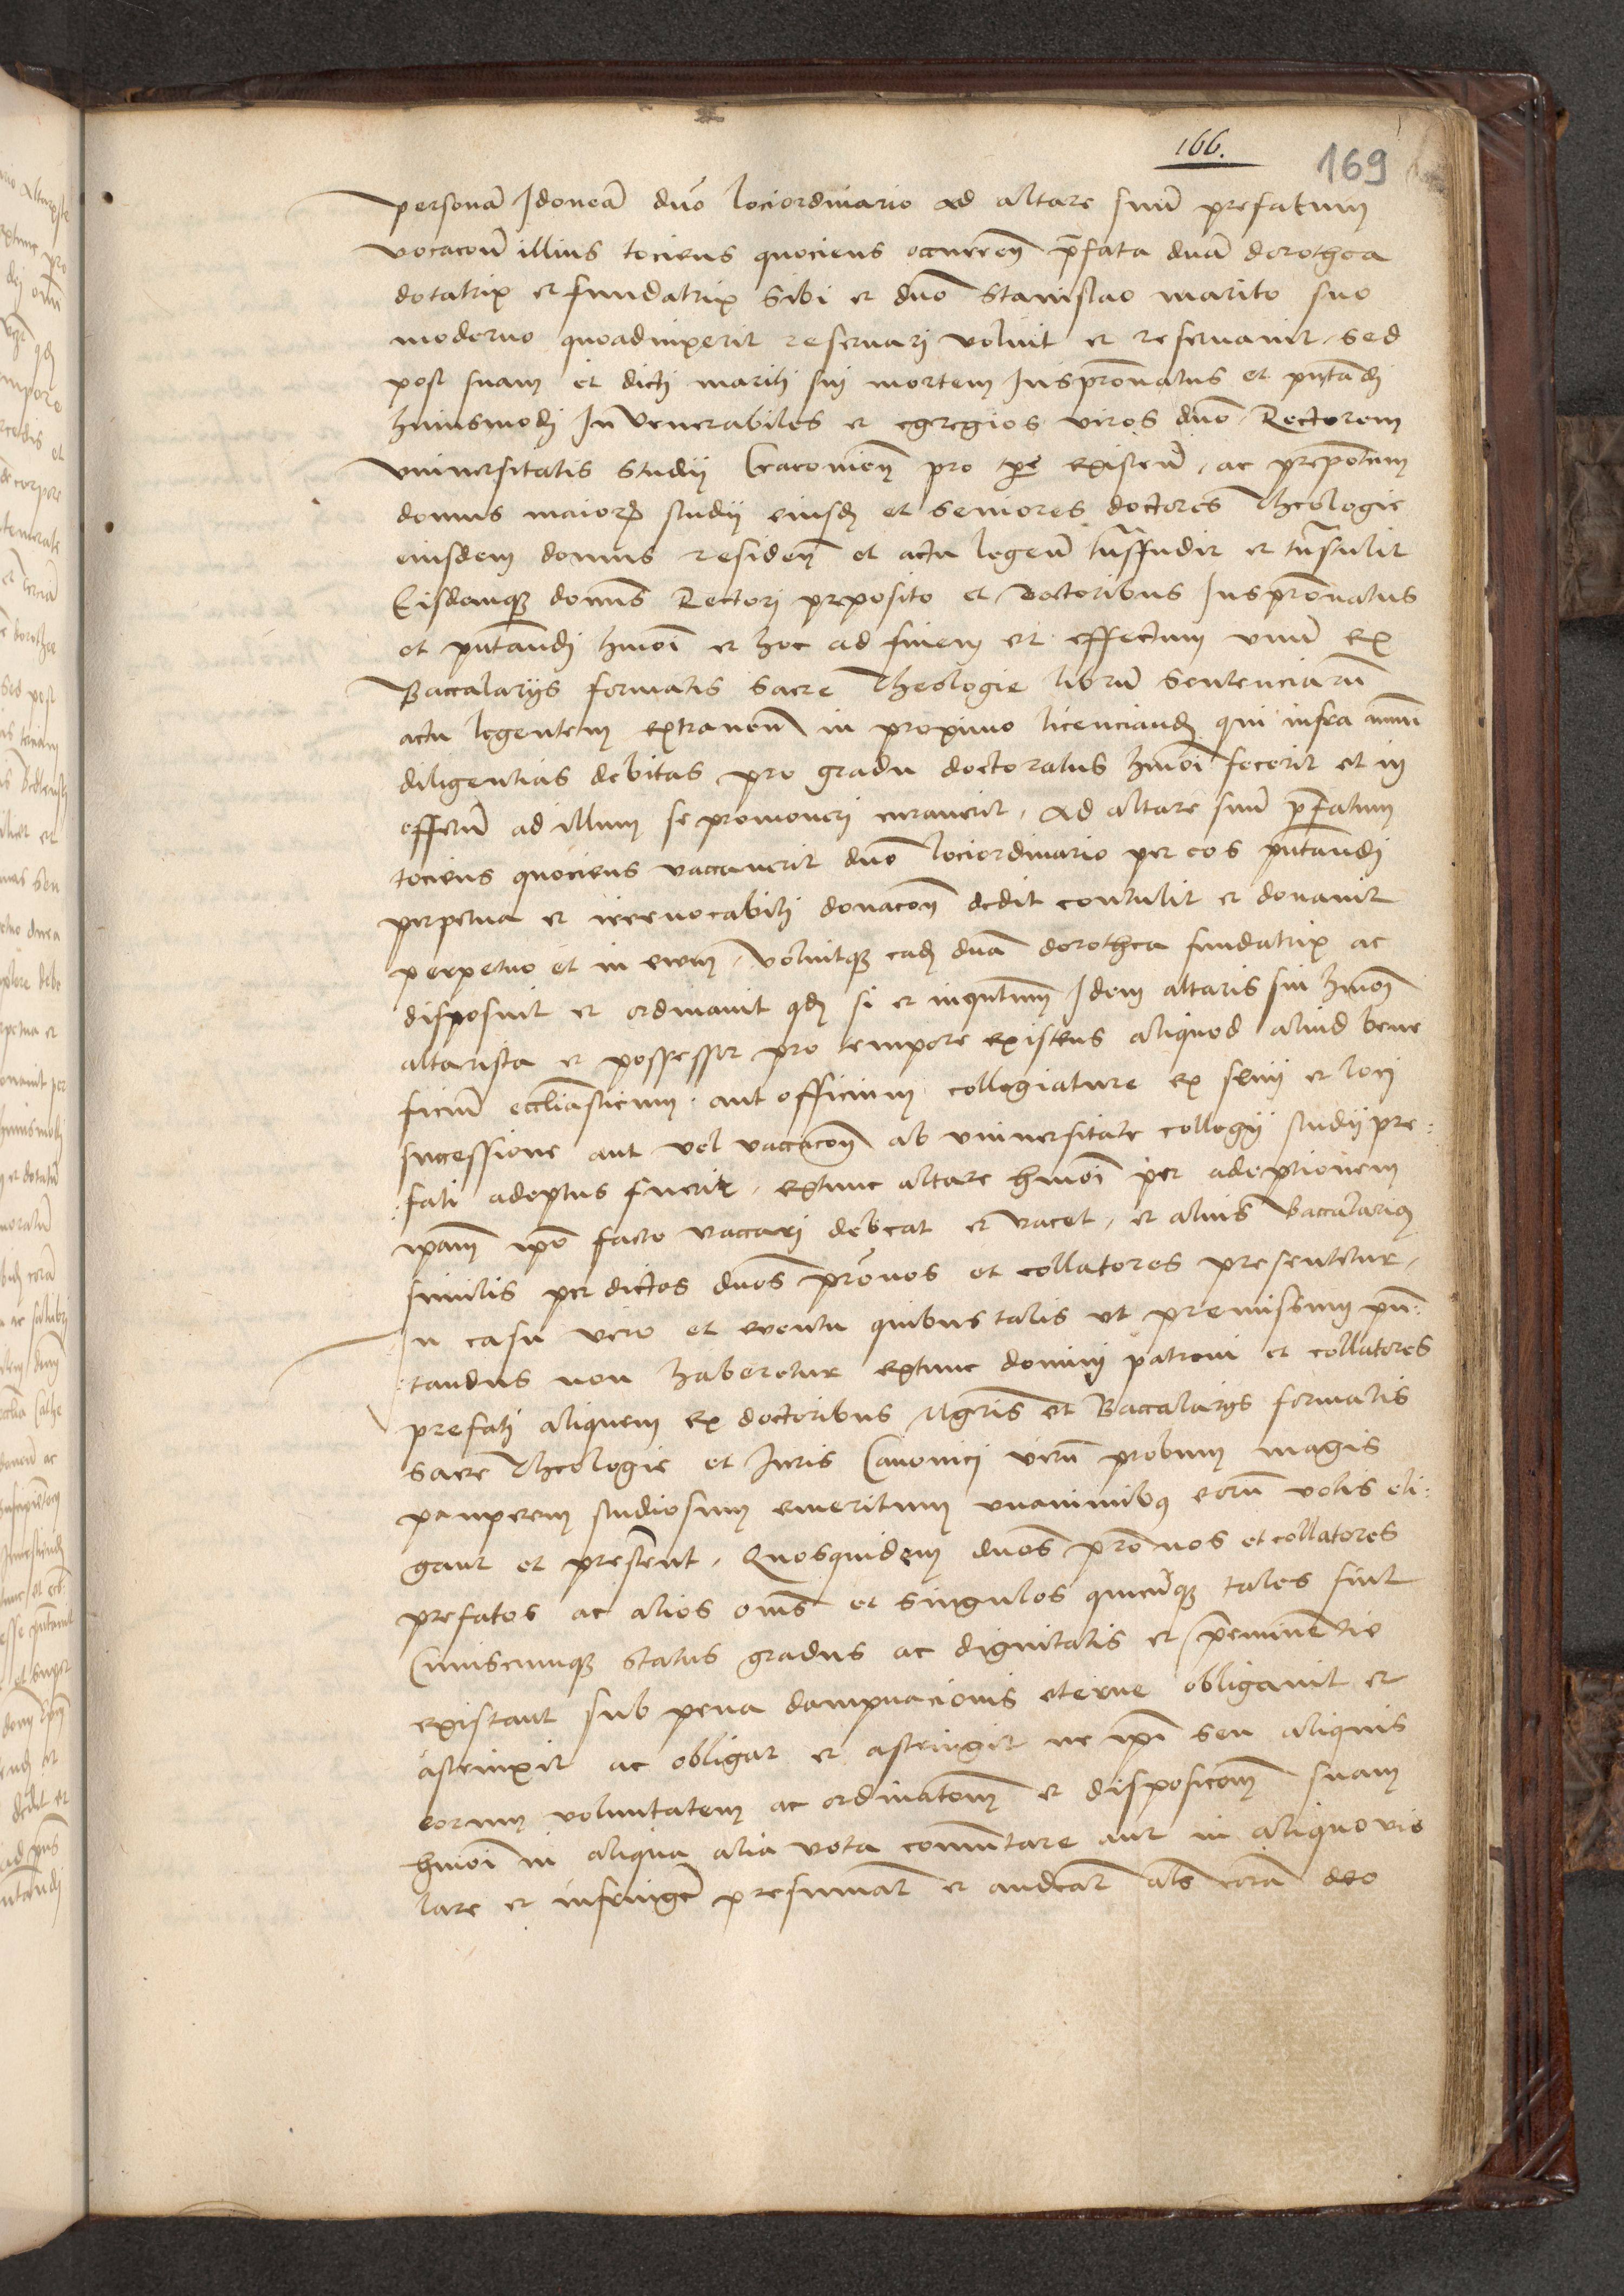 166.
169
personā Idoneā dno lociordinario ad altare suū prefatum
vocacoñ illius tociens quociens occurreñ p̄fata dnā dorothea
dotatrix et fundatrix sibi et dno Stanislao marito suo
moderno quoadvixerit reservarj voluit et reservavit, sed
post suam et dictj maritj suj mortem Iuspronatus et pntandj
huiusmodj In Venerabiles et egregios viros dnos Rectorem
vniuersitatis Studij Cracouieñ pro tpe existeñ, ac prepositum
domus maioris studij eiusd et seniores doctores Theologie
eiusdem domus resideñ et actu legeñ trāsfudit et trāstulit
Eisdemque domīs Rectorj preposito et doctoribus Iuspronatus
et pntandj hmoi et hoc ad finem et effectum vnū ex
Baccalarijs formatis sacre Theologie librū Sentenciarū
actu legentem in proximo licenciand qui infra annū
diligentias debitas pro gradu doctoratus hmoi fecerit et in
effectū ad illum se promoverj curaverit, Ad altare suū p̄fatum
tociens quociens vaccaverit dno lociordinario per eos pntandj
perpetua et irrevocabilj donacoñ dedit contulit et donavit
perpetuo et in evum, Voluitque eadē dnā dorothea fundatrix ac
disposuit et ordinavit qd si et inquntum Idem altaris sui hmoi
altarista et possessor pro tempore existens aliquod aliud bene
ficiū eccliasticum aut officium collegiature ex senij et locj
successione aut vel vaccacoñ ab vniuersitate collegij studij pre:
:fati adeptus fuerit, extunc altare hmoi per adeptionem
ipam ipo facto vaccarj debeat et vacet, et alius Baccalarius
similis per dictos dnos pronos et collatores presentetur,
In casu vero et eventu quibus talis ut premissum pn:
:tandus non haberetur extunc dominj patroni et collatores
prefatj aliquem ex doctoribus Mgris et Baccalarijs formatis
sacre Theologie et Iuris Canonicj virū probum magis
pauperem studiosum emeritum vnanimibus eorū votis eli:
gant et present, Quosquidem dnos pronos et collatores
prefatos ac alios oms et singulos quicūque tales sint
Cuiuscumque status gradus ac dignitatis et preminentie
existant sub pena dampnacionis eterne obligavit et
astrinxit ac obligat et astringit ne ipi seu aliquis
eorum voluntatem ac ordinatoñ et disposicoñ suam
hmoi in aliqua alia vota comutare aut in aliquo vio
lare et infringē presumat et audeat als corā deo